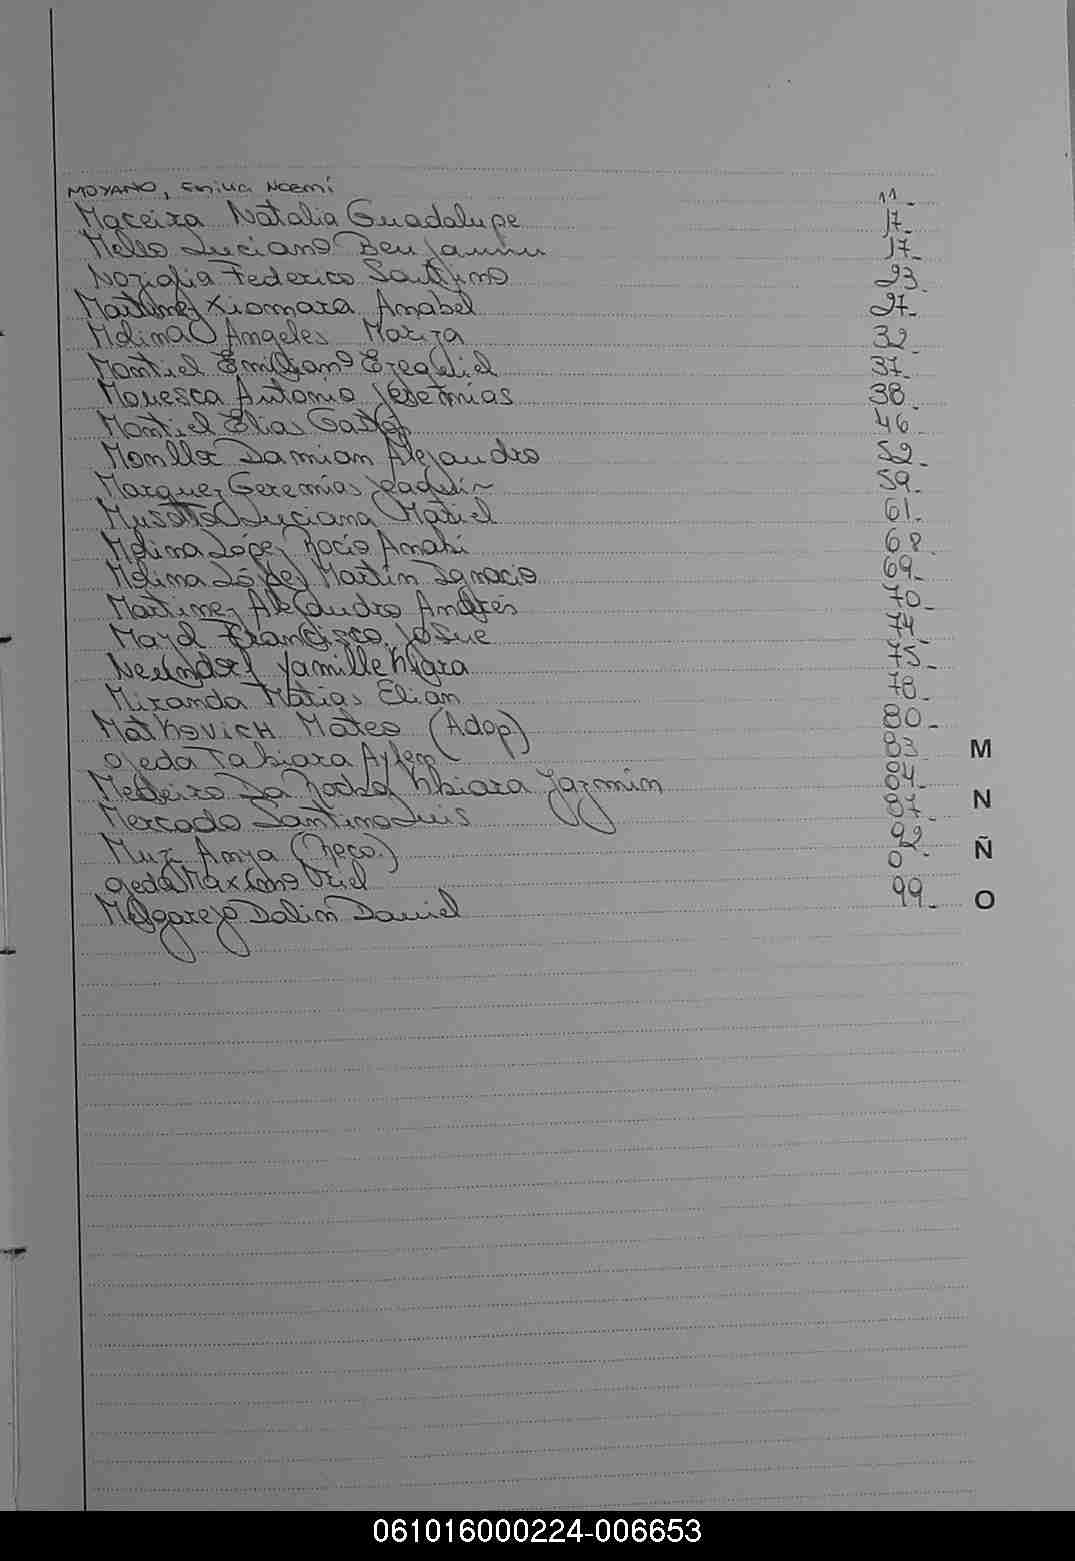 MOYANO, Emilia Noemí 11.
Maceira Natalia Guadalupe 17.
Mello Luciano Benjamín 17.
Noziglia Federico Santino 23.
Martinez Xiomara Anabel 27.
Molina Angeles Mariza 32.
Montiel Emiliano Ezequiel 37.
Monesca Antonio Jeremias 38.
Montiel Elias Gastón 46.
Monlla Damian Alejandro 52.
Marquez Geremías Joaquín 59.
Musatto Luciana Mariel 61.
Molina López Rocío Anahi 68.
Molina López Martín Ignacio 69.
Martinez Alejandro Andrés 70.
Mayol Francisco Josue 74.
Neundorf Yamille Kiara 75.
Miranda Matias Elian 78.
MatKovicH Mateo (Adop) 80.
Ojeda Tahiara Aylen 83.
M
Medeiro Da Rocha Khiara Jazmín 84.
Mercado Santino Luis 87.
N
Muzi Amya 92.
Ñ
Ojeda Maximo Uriel
Melgarejo Dalin Daniel 99.
O
061016000224-006653